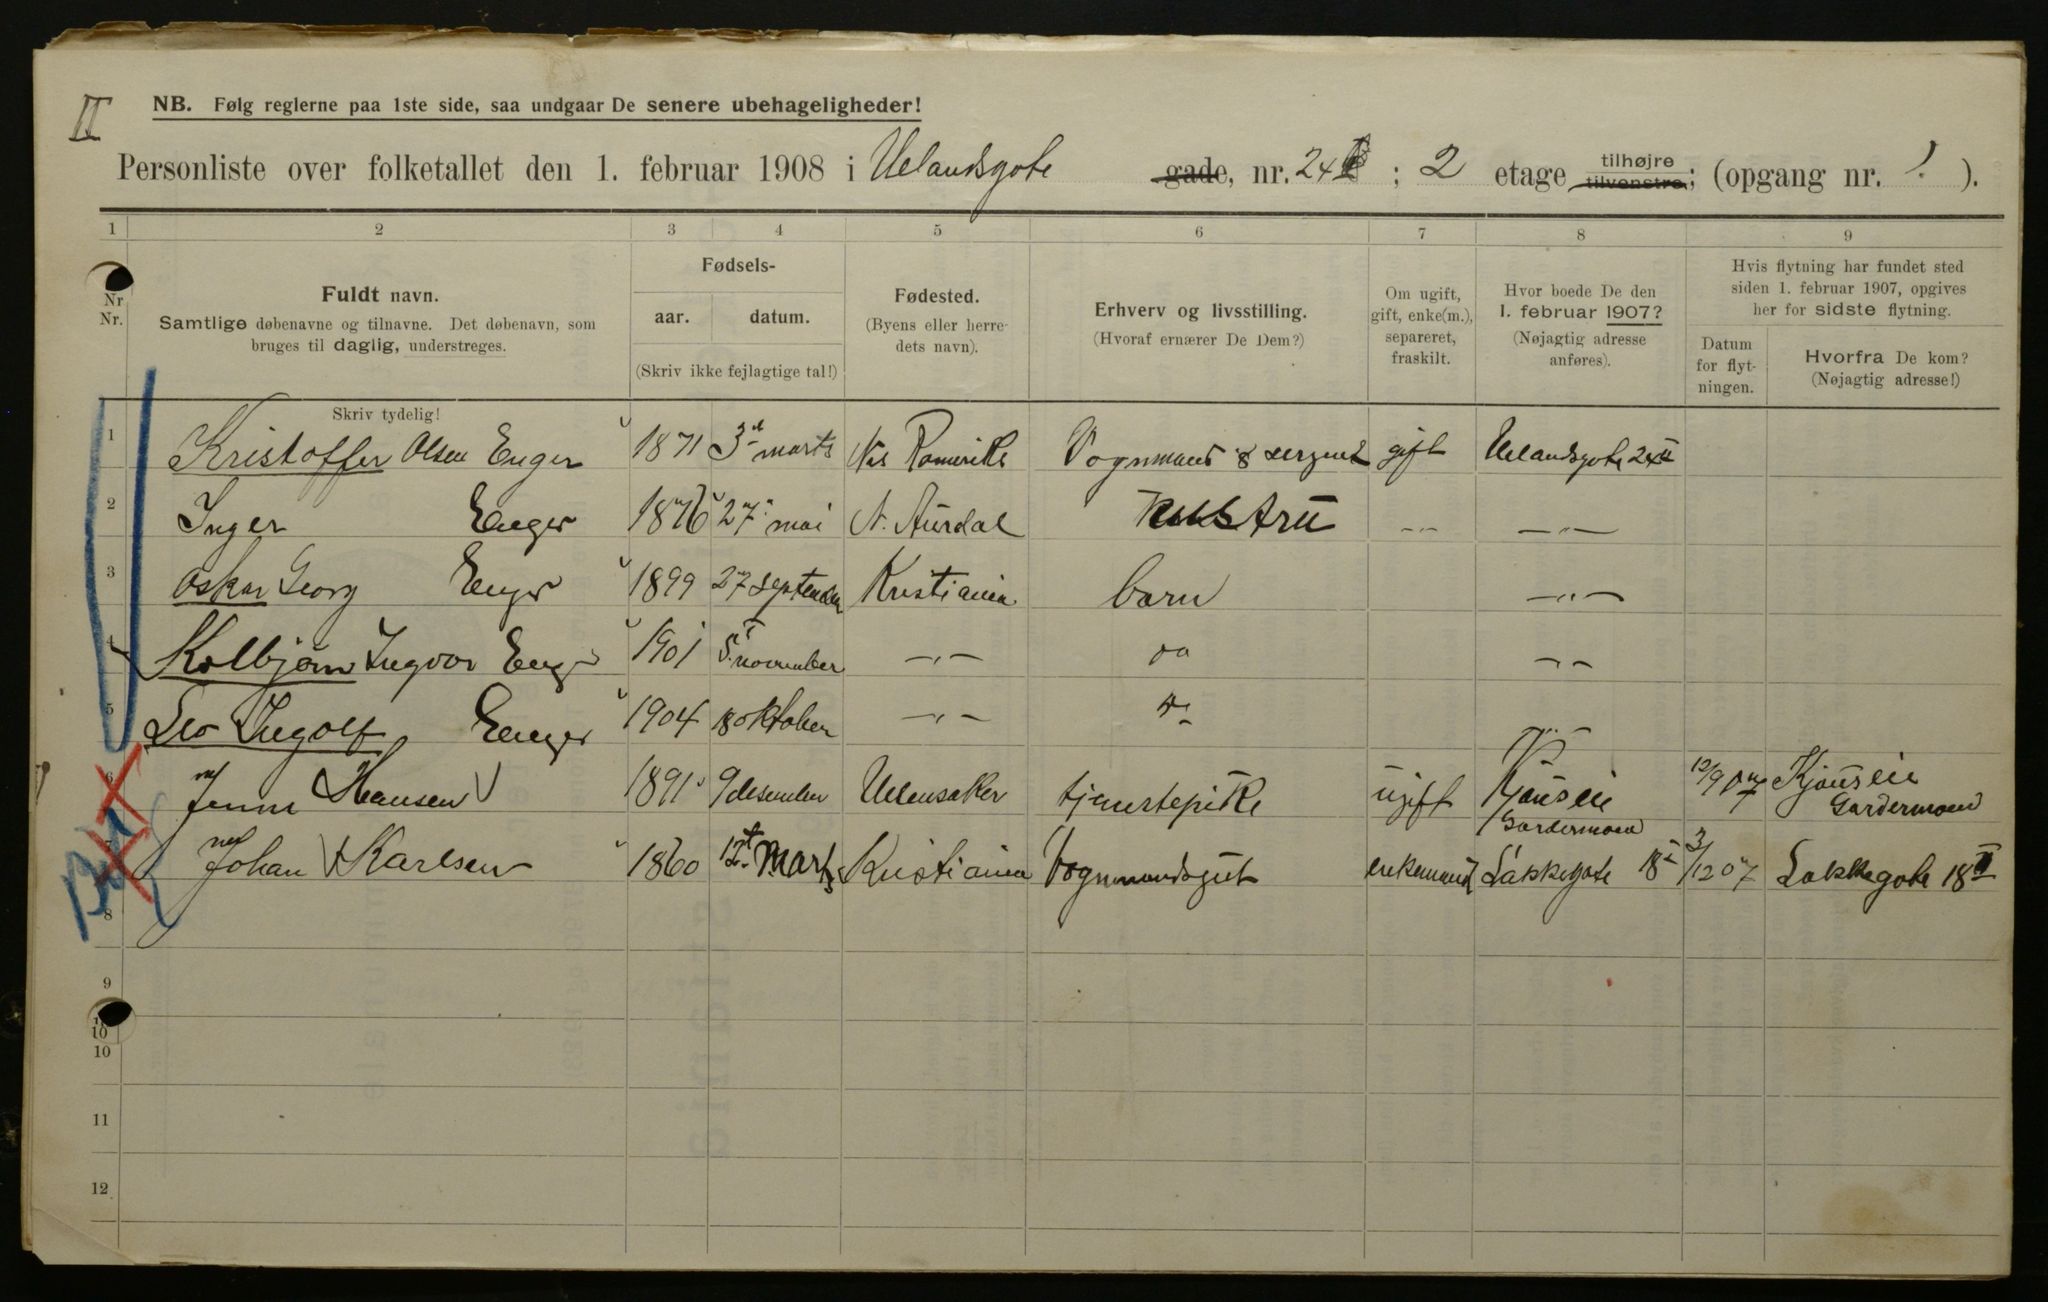 II
NB. Følg reglerne paa 1ste side, saa undgaar De senere ubehageligheder!
Personliste over folketallet den 1. februar 1908 i Uelandsgote gade, nr. 24 ; 2 etage tilhøjre tilvenstre; (opgang nr. 1 ).
1 2 3 4 5 6 7 8 9
Nr. Nr.
Fuldt navn.
Samtlige døbenavne og tilnavne. Det døbenavn, som
bruges til daglig, understreges.
Skriv tydelig!
Fødsels-
aar. datum.
(Skriv ikke fejlagtige tal!)
Fødested.
(Byens eller herre-
dets navn).
Erhverv og livsstilling.
(Hvoraf ernærer De Dem?)
Om ugift,
gift, enke(m.),
separeret,
fraskilt.
Hvor boede De den
1. februar 1907?
(Nøjagtig adresse
anføres).
Hvis flytning har fundet sted
siden 1. februar 1907, opgives
her for sidste flytning.
Datum
for flyt-
ningen.
Hvorfra De kom?
(Nøjagtig adresse!)
1 Kristoffer Olsen Enger 1871 3 marts Nes Romerike Vognmand & sergent gift Uelandsgote 24 II
2 Inger Enger 1876 27 mai N. Aurdal -"- -"-
3 Oskar Georg Enger 1899 27 september Kristiania barn -"-
4 Kolbjørn Ingvar Enger 1901 5. november -"- do -"-
5 Leo Ingolf Enger 1904 18 oktober -"- do -"-
6 Jenni Hansen 1891 9 desember Ullensaker tjenestepike ugift Kjøus eie Gardermoen 12/9 07 Kjøus eie
Gardermoen
7 Johan Karlsen 1860 12t Marts Kristiania Vognmandsgut enkemand Lakkegote 18 II 3/12 07 Lakkegote 18 II
8
9
10
10
11
12